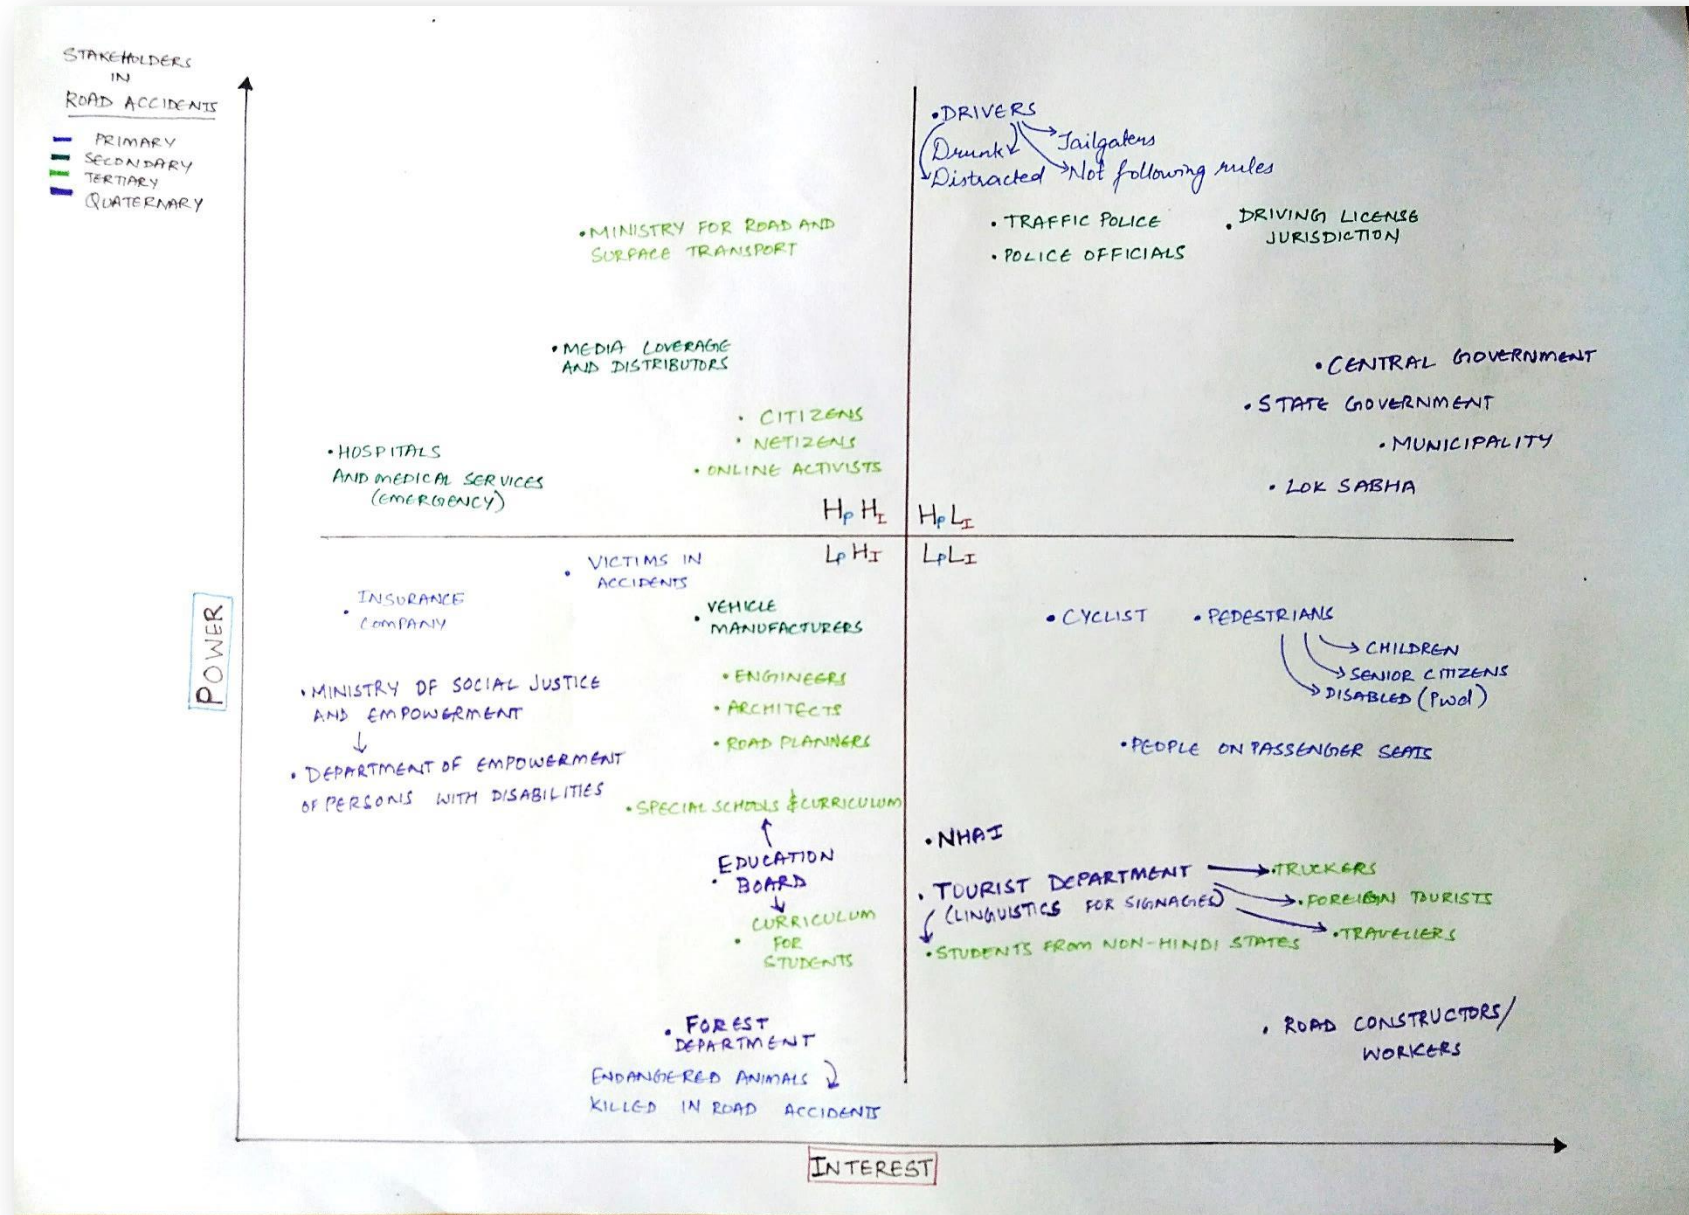 STAKEHOLDERS
IN
ROAD ACCIDENTS
PRIMARY
SECONDARY
TERTIARY
QUATERNARY
•MINISTRY FOR ROAD AND
SURFACE TRANSPORT
•MEDIA COVERAGE
AND DISTRIBUTORS
• CITIZENS
• NETIZENS
• ONLINE ACTIVISTS
•HOSPITALS
AND MEDICAL SERVICES
(EMERGENCY)
Hp HI
•DRIVERS
Drunk
Distracted
Tailgaters
Not following rules
• TRAFFIC POLICE
• POLICE OFFICIALS
• DRIVING LICENSE
JURISDICTION
•CENTRAL GOVERNMENT
•STATE GOVERNMENT
•MUNICIPALITY
• LOK SABHA
Hp LI
Lp HI
• VICTIMS IN
ACCIDENTS
• INSURANCE
COMPANY
• VEHICLE
MANUFACTURERS
•MINISTRY OF SOCIAL JUSTICE
AND EMPOWERMENT
• DEPARTMENT OF EMPOWERMENT
OF PERSONS WITH DISABILITIES
•ENGINEERS
•ARCHITECTS
•ROAD PLANNERS
•SPECIAL SCHOOLS & CURRICULUM
EDUCATION
• BOARD
CURRICULUM
• FOR
STUDENTS
• FOREST
DEPARTMENT
ENDANGERED ANIMALS
KILLED IN ROAD ACCIDENTS
LpLI
•CYCLIST
•PEDESTRIANS
CHILDREN
SENIOR CITIZENS
DISABLED (Pwd)
•PEOPLE ON PASSENGER SEATS
•NHAI
• TOURIST DEPARTMENT
(LINGUISTICS FOR SIGNAGES)
•TRUCKERS
•FOREIGN TOURISTS
•TRAVELLERS
•STUDENTS FROM NON-HINDI STATES
• ROAD CONSTRUCTORS/
WORKERS
POWER
INTEREST